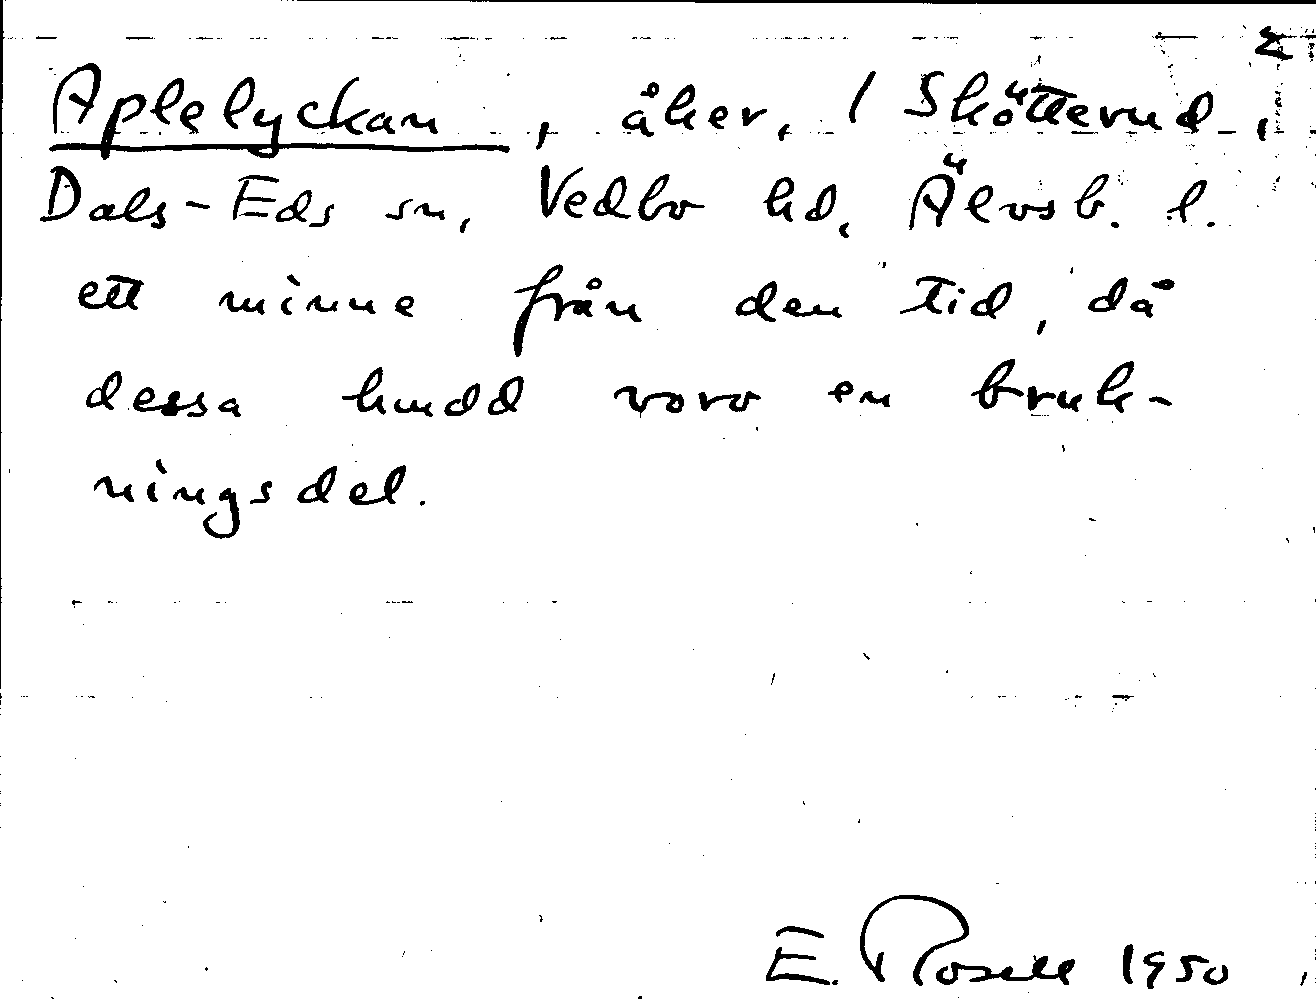 2
Aplelyckan, åker, 1 Skötterud,
Dals-Eds sn, Vedbo hd, Älvsb. l.
ett minne från den tid, då
dessa hmdd voro en bruk-
ningsdel.
E. Rosell 1950